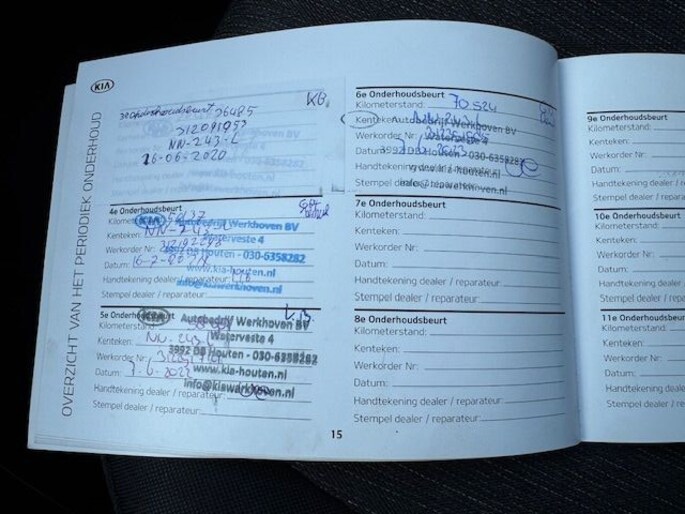 KIA
OVERZICHT VAN HET PERIODIEK ONDERHOUD
3e onderhoudsbeurt 26485
312091953
NN-243-L
26-06-2020
4e Onderhoudsbeurt
Kilometerstand:
KIA Autobedrijf Werkhoven BV
Kenteken: NN-243-L
Waterveste 4
Werkorder Nr:
3992 DB Houten - 030-6358282
Datum:
www.kia-houten.nl
Handtekening dealer / reparateur:
info@kiawerkhoven.nl
Stempel dealer / reparateur:
5e Onderhoudsbeurt
KIA Autobedrijf Werkhoven BV
Kilometerstand:
Waterveste 4
Kenteken: NN-243-L
3992 DB Houten - 030-6358282
Werkorder Nr:
www.kia-houten.nl
Datum: 7-6-2022
info@kiawerkhoven.nl
Handtekening dealer / reparateur:
Stempel dealer / reparateur:
6e Onderhoudsbeurt
Kilometerstand: 70524
Kenteken: Autobedrijf Werkhoven BV
Werkorder Nr: Waterveste 4
Datum: 3992 DB Houten - 030-6358282
Handtekening dealer / reparateur: www.kia-houten.nl
Stempel dealer / reparateur: info@kiawerkhoven.nl
7e Onderhoudsbeurt
Kilometerstand:
Kenteken:
Werkorder Nr:
Datum:
Handtekening dealer / reparateur:
Stempel dealer / reparateur:
8e Onderhoudsbeurt
Kilometerstand:
Kenteken:
Werkorder Nr:
Datum:
Handtekening dealer / reparateur:
Stempel dealer / reparateur:
15
9e Onderhoudsbeurt
Kilometerstand:
Kenteken:
Werkorder Nr:
Datum:
Handtekening dealer / reparateur:
Stempel dealer / reparateur:
10e Onderhoudsbeurt
Kilometerstand:
Kenteken:
Werkorder Nr:
Datum:
Handtekening dealer / reparateur:
Stempel dealer / reparateur:
11e Onderhoudsbeurt
Kilometerstand:
Kenteken:
Werkorder Nr:
Datum:
Handtekening dealer / reparateur:
Stempel dealer / reparateur: